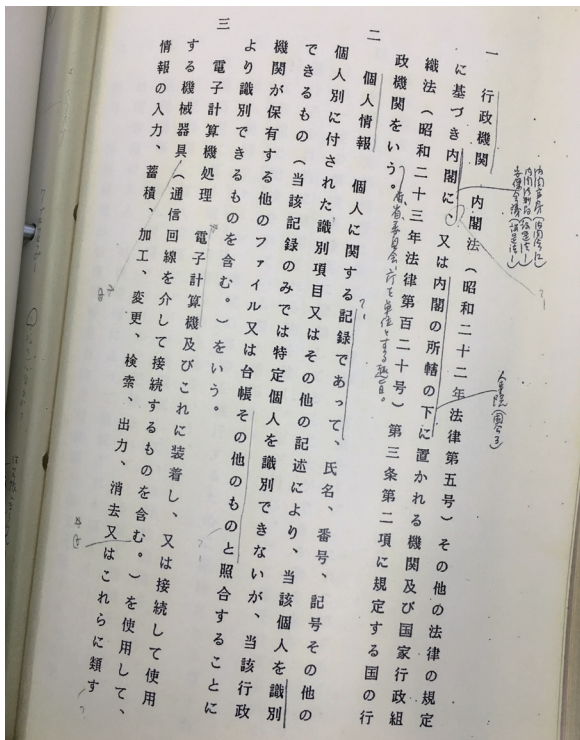 一　行政機関　内閣法（昭和二十二年法律第五号）その他の法律の規定
に基づき内閣に、又は内閣の所轄の下に置かれる機関及び国家行政組
織法（昭和二十三年法律第百二十号）第三条第二項に規定する国の行
政機関をいう。
府省委員会、庁を単位とする趣旨。
人事院（国公3）
二　個人情報　個人に関する記録であって、氏名、番号、記号その他の
個人別に付された識別項目又はその他の記述により、当該個人を識別
できるもの（当該記録のみでは特定個人を識別できないが、当該行政
機関が保有する他のファイル又は台帳その他のものと照合することに
より識別できるものを含む。）をいう。
三　電子計算機処理　電子計算機及びこれに装着し、又は接続して使用
する機械器具（通信回線を介して接続するものを含む。）を使用して、
情報の入力、蓄積、加工、変更、検索、出力、消去又はこれらに類す